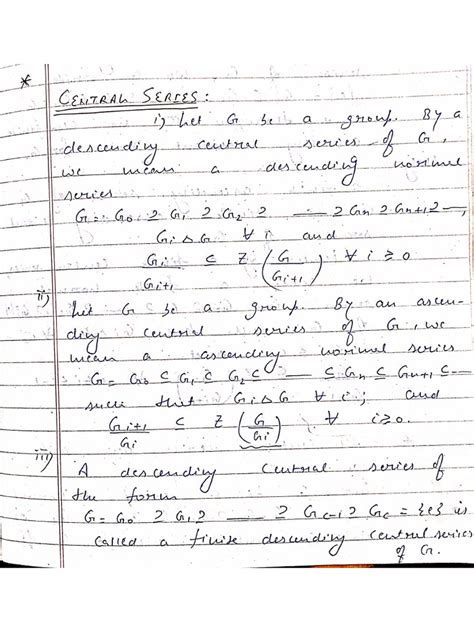 *
CENTRAL SERIES:
i) Let G be a group. By a
descending central series of G,
we mean a descending normal
series
G = G₀ ⊇ G₁ ⊇ G₂ ⊇ --- ⊇ Gn ⊇ Gn+1 ⊇ --,
Gi Δ G ∀ i and
Gi/Gi+1 ⊆ Z(G/Gi+1) ∀ i ≥ 0
ii) Let G be a group. By an ascen-
ding central series of G, we
mean a ascending normal series
G = G₀ ⊆ G₁ ⊆ G₂ ⊆ --- ⊆ Gn ⊆ Gn+1 ⊆ --
such that Gi Δ G ∀ i ; and
Gi+1/Gi ⊆ Z(G/Gi) ∀ i ≥ 0.
iii) A descending central series of
the form
G = G₀ ⊇ G₁ ⊇ --- ⊇ Gc-1 ⊇ Gc = {e} is
called a finite descending central series
of G.